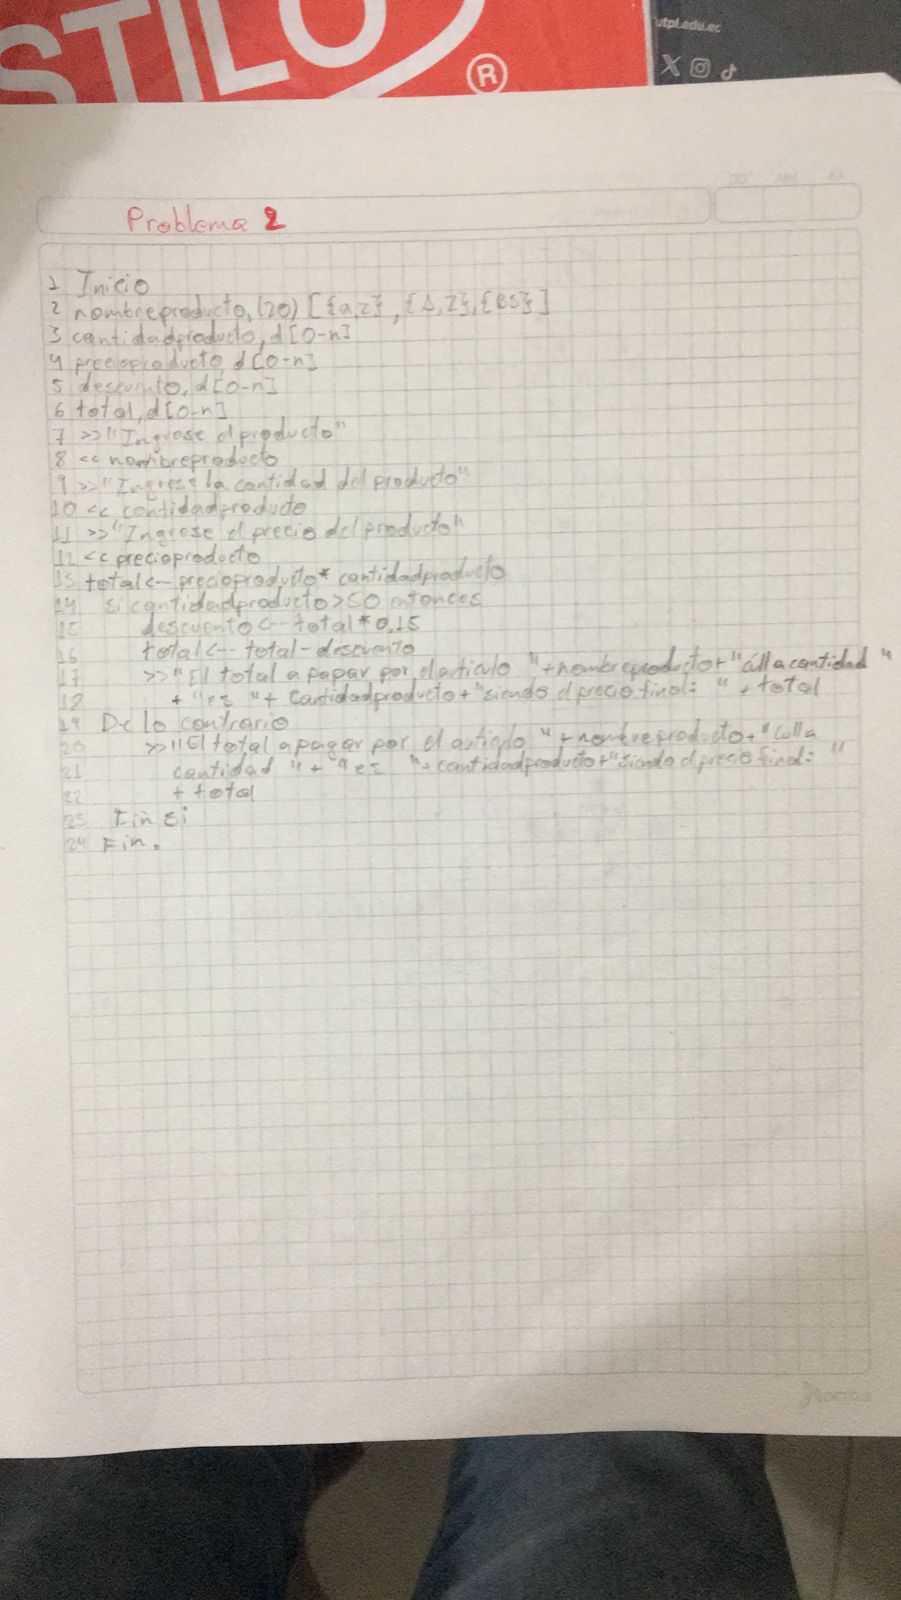 STILO
®
utpl.edu.ec
Problema 2
1 Inicio
2 nombreproducto, (20) [{a,z}, {A,Z}, {BS}]
3 cantidadproducto, d[0-n]
4 precioproducto d[0-n]
5 descuento, d[0-n]
6 total, d[0-n]
7 >>"Ingrese el producto"
8 << nombreproducto
9 >>"Ingrese la cantidad del producto"
10 << cantidadproducto
11 >>"Ingrese el precio del producto"
12 << precioproducto
13 total<-- precioproducto* cantidadproducto
14 si cantidadproducto>50 entonces
15 descuento<-- total*0.15
16 total<-- total-descuento
17 >>"El total a pagar por el articulo "+nombreproducto+" cantidad "
18 + "es "+ cantidadproducto+"siendo el precio final: "+ total
19 De lo contrario
20 >>"El total a pagar por el articulo "+nombreproducto+"
21 cantidad "+ "es "+cantidadproducto+"siendo el precio final: "
22 + total
23 Fin si
24 Fin.
Norma